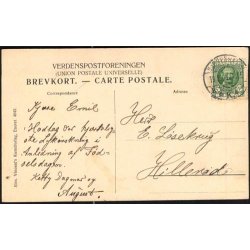 VERDENSPOSTFORENINGEN
(UNION POSTALE UNIVERSELLE)
BREVKORT. — CARTE POSTALE.
Correspondance
Adresse
Kjære Emil
Modtag vor hjertelig
ste Lykønskning i
Anledning af Fød-
selsdagen
Dagmar og
August.
Herr
E.
Hillerød